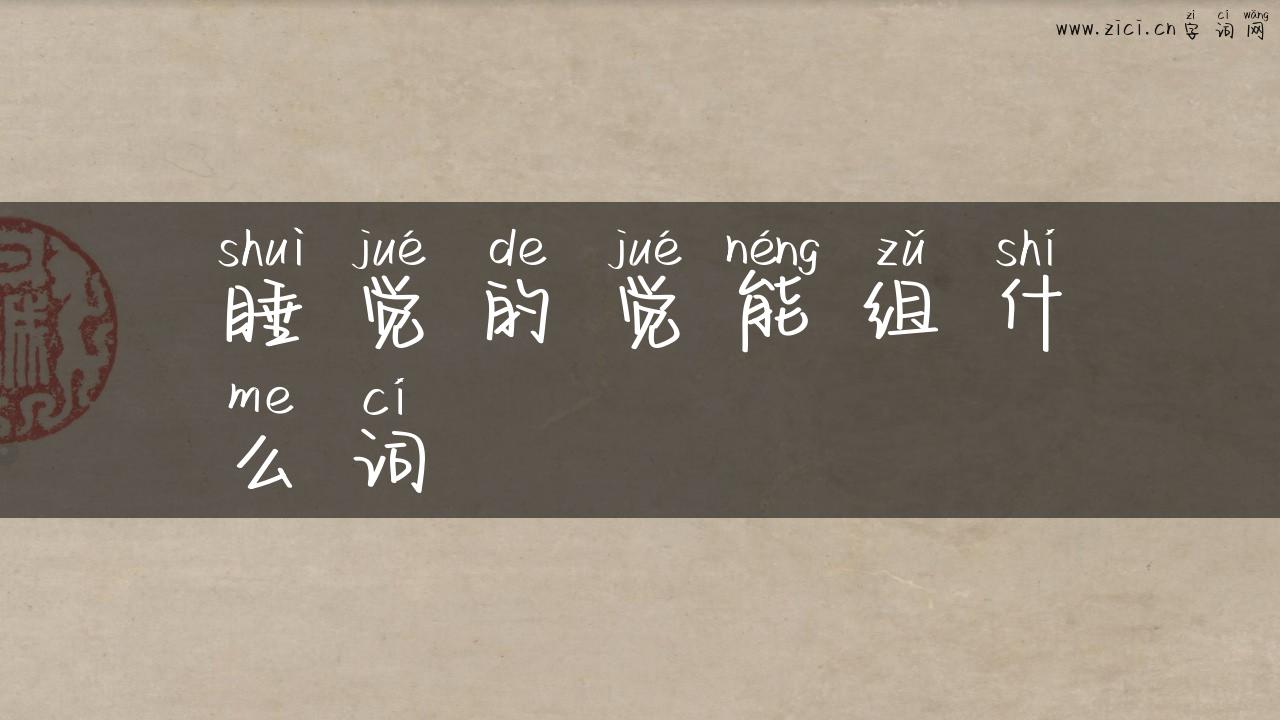 zì cí wǎng
www.zici.cn 字词网
shuì jué de jué néng zǔ shí
睡觉的觉能组什
me cí
么词